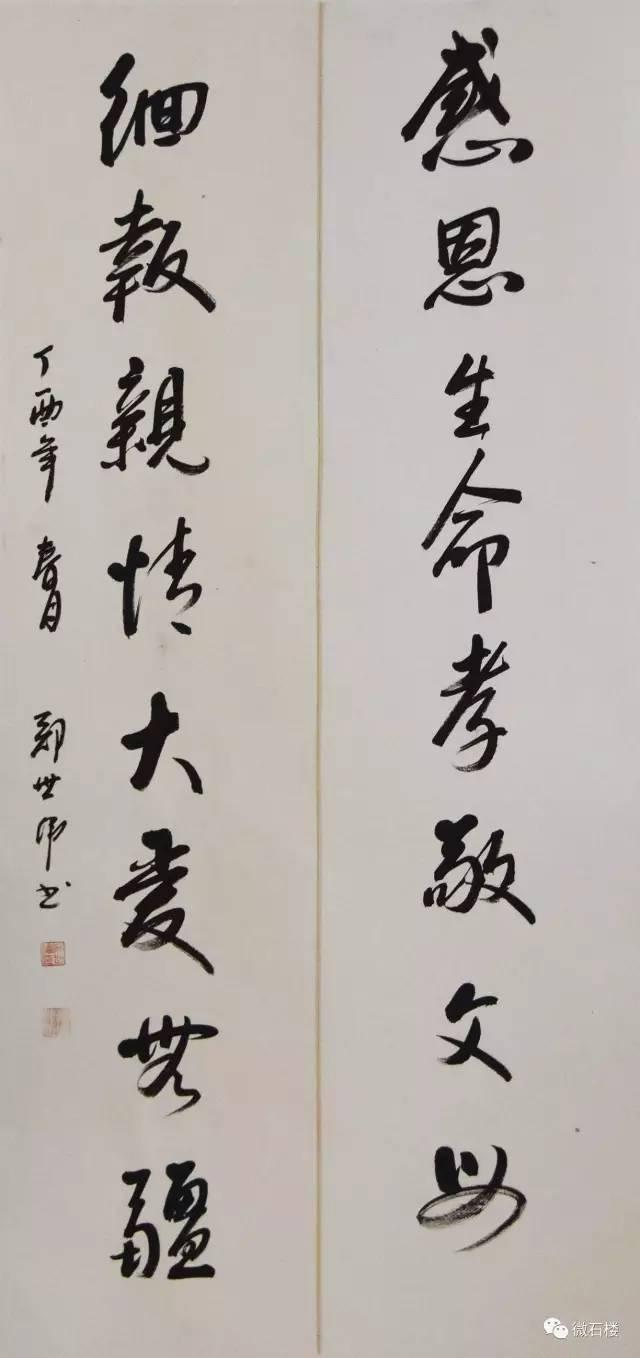 感恩生命孝敬父母
緬報親情大愛無疆
丁酉年 春月 鄭世 书
微石楼